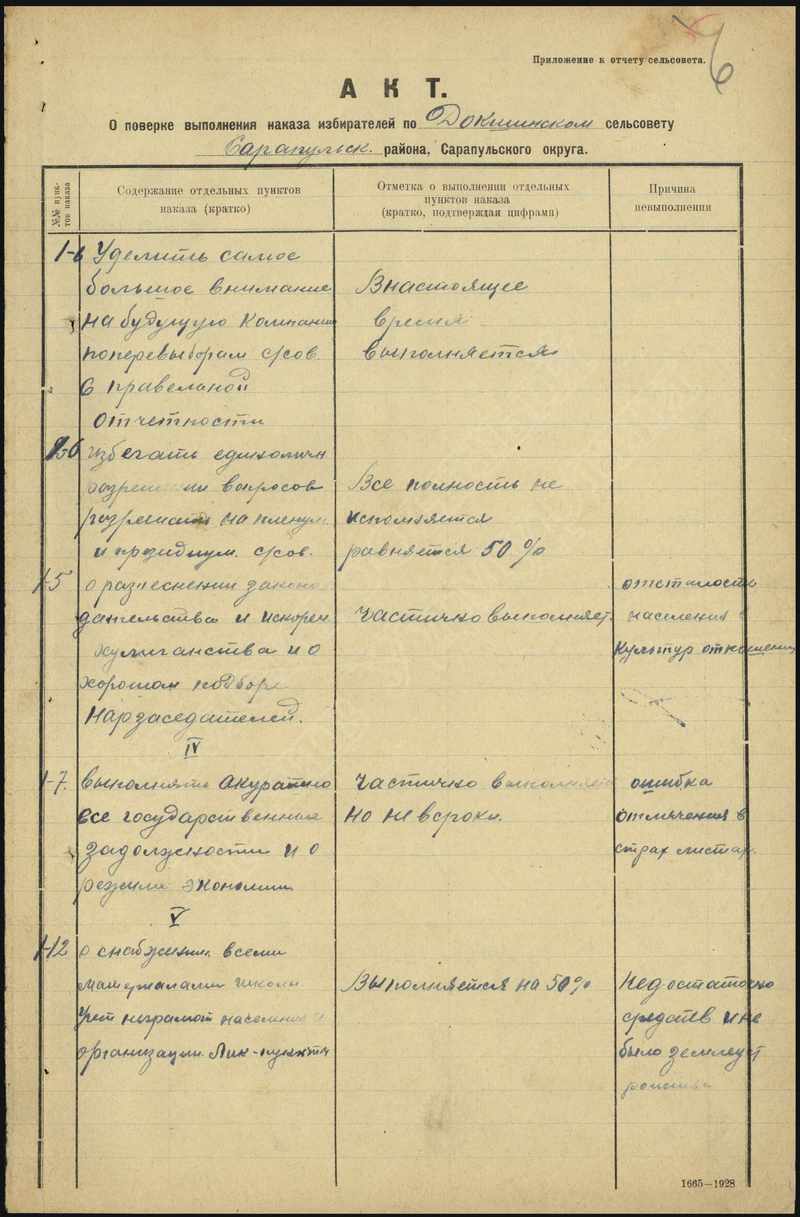 6
Приложение к отчету сельсовета.
АКТ.
О поверке выполнения наказа избирателей по Докшинском сельсовету
Сарапульск. района, Сарапульского округа.
№№ пунк-
тов наказа
Содержание отдельных пунктов
наказа (кратко)
Отметка о выполнении отдельных
пунктов наказа
(кратко, подтверждая цифрами)
Причина
невыполнения
1-6 Уделить самое
большое внимание
на будущую компанию
поперевыборам с/сов.
в правельной
отчетности
Внастоящее
время
выполняется
избегать единоличн
вопросов
на пленум
и президиум. с/сов.
Все полность не
исполняется
равняется 50%
1-5 о разяеснении законо
дательства и искорен
хулиганства и о
хорошом подборе
Нарзаседателей.
частично выполняет.
отсталость
населения
Культур отношении
IV
1-7. выполнять акуратно
все государственные
задолжности и о
режиме экономии
частично выполняется
но не всроки.
ошибка
отмечения в
страх листах.
V
1-12 о снабжении всеми
материалами школы
Учет неграмот населения и
организации Лик-пункта
Выполняется на 50%
Недостаточно
средств и не
было землеуст
ройства
1665—1928